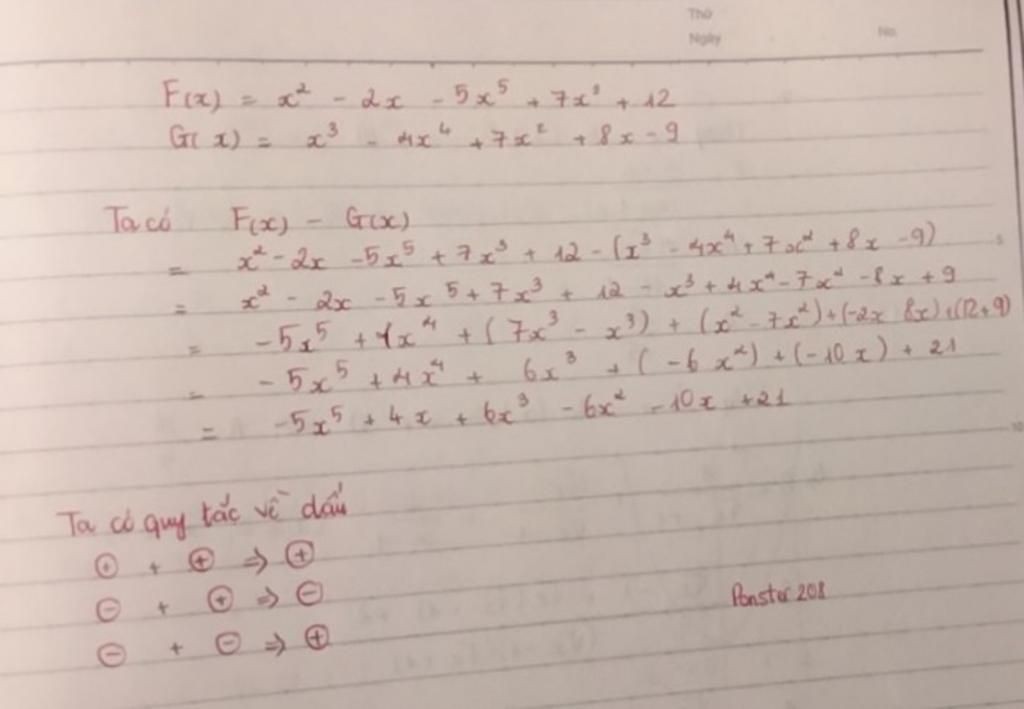 Thứ
Ngày No.
F(x) = x² - 2x - 5x⁵ + 7x³ + 12
G(x) = x³ - 4x⁴ + 7x² + 8x - 9
Ta có F(x) - G(x)
= x² - 2x - 5x⁵ + 7x³ + 12 - (x³ - 4x⁴ + 7x² + 8x - 9)
= x² - 2x - 5x⁵ + 7x³ + 12 - x³ + 4x⁴ - 7x² - 8x + 9
= -5x⁵ + 4x⁴ + (7x³ - x³) + (x² - 7x²) + (-2x 8x) + (12+9)
= -5x⁵ + 4x⁴ + 6x³ + (-6x²) + (-10x) + 21
= -5x⁵ + 4x + 6x³ - 6x² - 10x + 21
Ta có quy tắc về dấu
⊕ + ⊕ => ⊕
⊖ + ⊕ => ⊖
⊖ + ⊖ => ⊕
Ponster 208